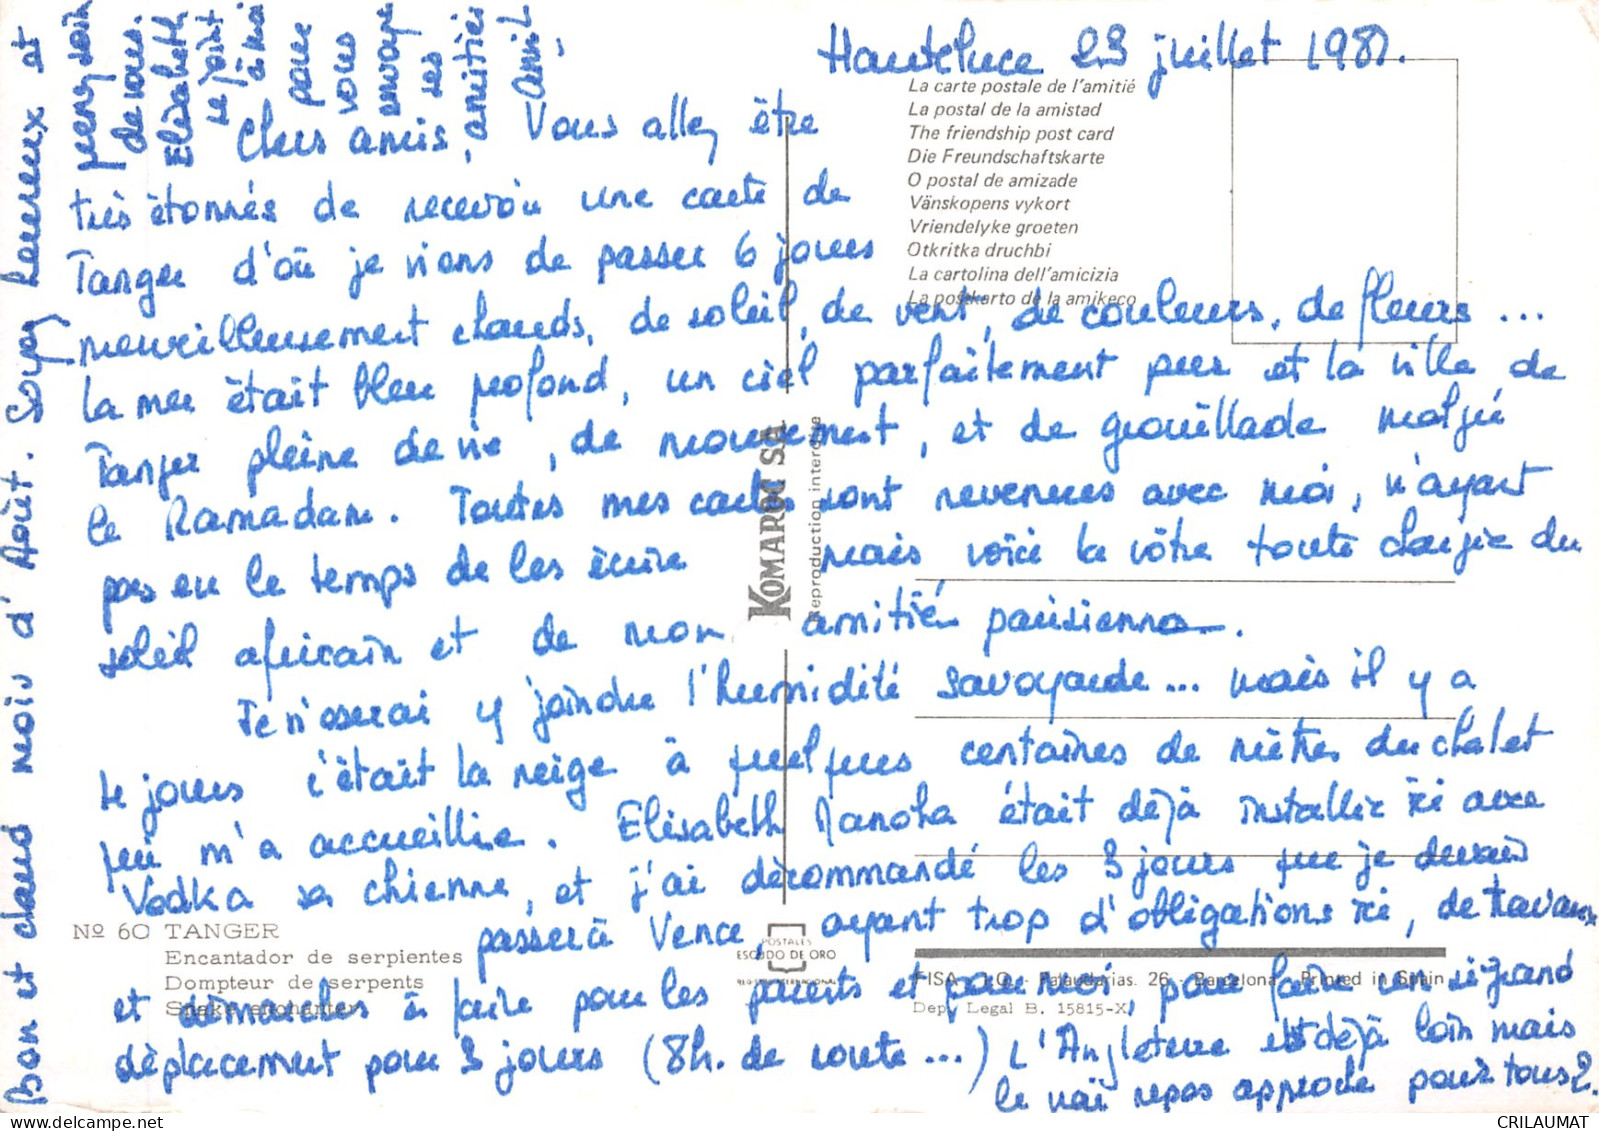 Hauteluce 23 juillet 1981.
La carte postale de l'amitié
La postal de la amistad
The friendship post card
Die Freundschaftskarte
O postal de amizade
Vänskopens vykort
Vriendelyke groeten
Otkritka druchbi
La cartolina dell'amicizia
La postkarto de la amikeco
Chers amis, Vous allez être
très étonnés de recevoir une carte de
Tanger d'où je viens de passer 6 jours
merveilleusement chauds, de soleil, de vent, de couleurs, de fleurs...
la mer était bleu profond, un ciel parfaitement pur et la ville de
Tanger pleine de vie, de mouvement, et de grouillade malgré
le Ramadan. Toutes mes cartes sont revenues avec moi, n'ayant
pas eu le temps de les écrire mais voici la vôtre toute chargée du
soleil africain et de mon amitié parisienne.
Je n'oserai y joindre l'humidité savoyarde... mais il y a
4 jours c'était la neige à quelques centaines de mètres du chalet
qui m'a accueillie. Elisabeth Manoha était déjà installée ici avec
Vodka sa chienne, et j'ai décommandé les 3 jours que je devais
passer à Vence, ayant trop d'obligations ici, de travaux
et démarches à faire pour les parents et pour moi, pour faire un si grand
déplacement pour 3 jours (8h. de route...) L'Angleterre est déjà loin mais
le vrai repos approche pour tous?
Bon et chaud mois d'Août. Soyez heureux et
qu'en soit
de vous.
Elisabeth
se joint
à moi
pour
vous
envoyer
ses
amitiés
KOMAROC SA
Reproduction interdite
Nº 60 TANGER
Encantador de serpientes
Dompteur de serpents
Snake enchanter
POSTALES
ESCUDO DE ORO
FISA - I.G. - Palaudarias, 26 - Barcelona - Printed in Spain
Dep. Legal B. 15815-X
CRILAUMAT